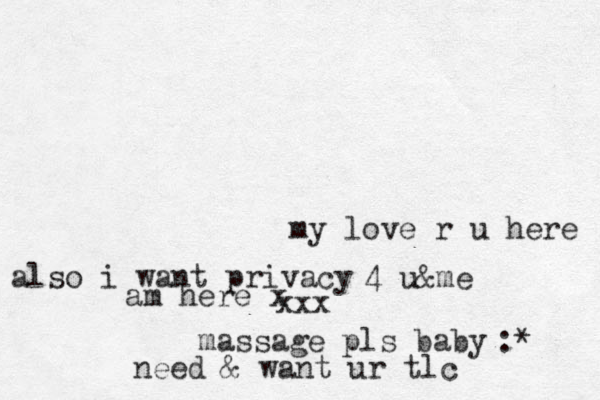 my love r u here
also i want privacy 4 u&me
am here xxxx
massage pls baby :*
need & want ur tlc